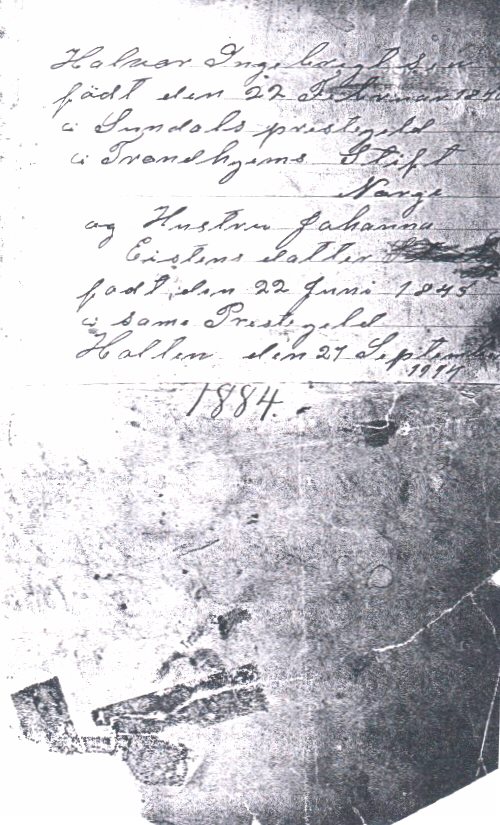 Halvor Ingebregtsen
födt den 22 Februar 184
i Sundals prestegeld
i Trondhyems Stift
Norge
og Hustru Johanna
Eistens datter
födt den 22 Juni 1845
i same Prestegeld
Hallen den 27 Septemb
1884.